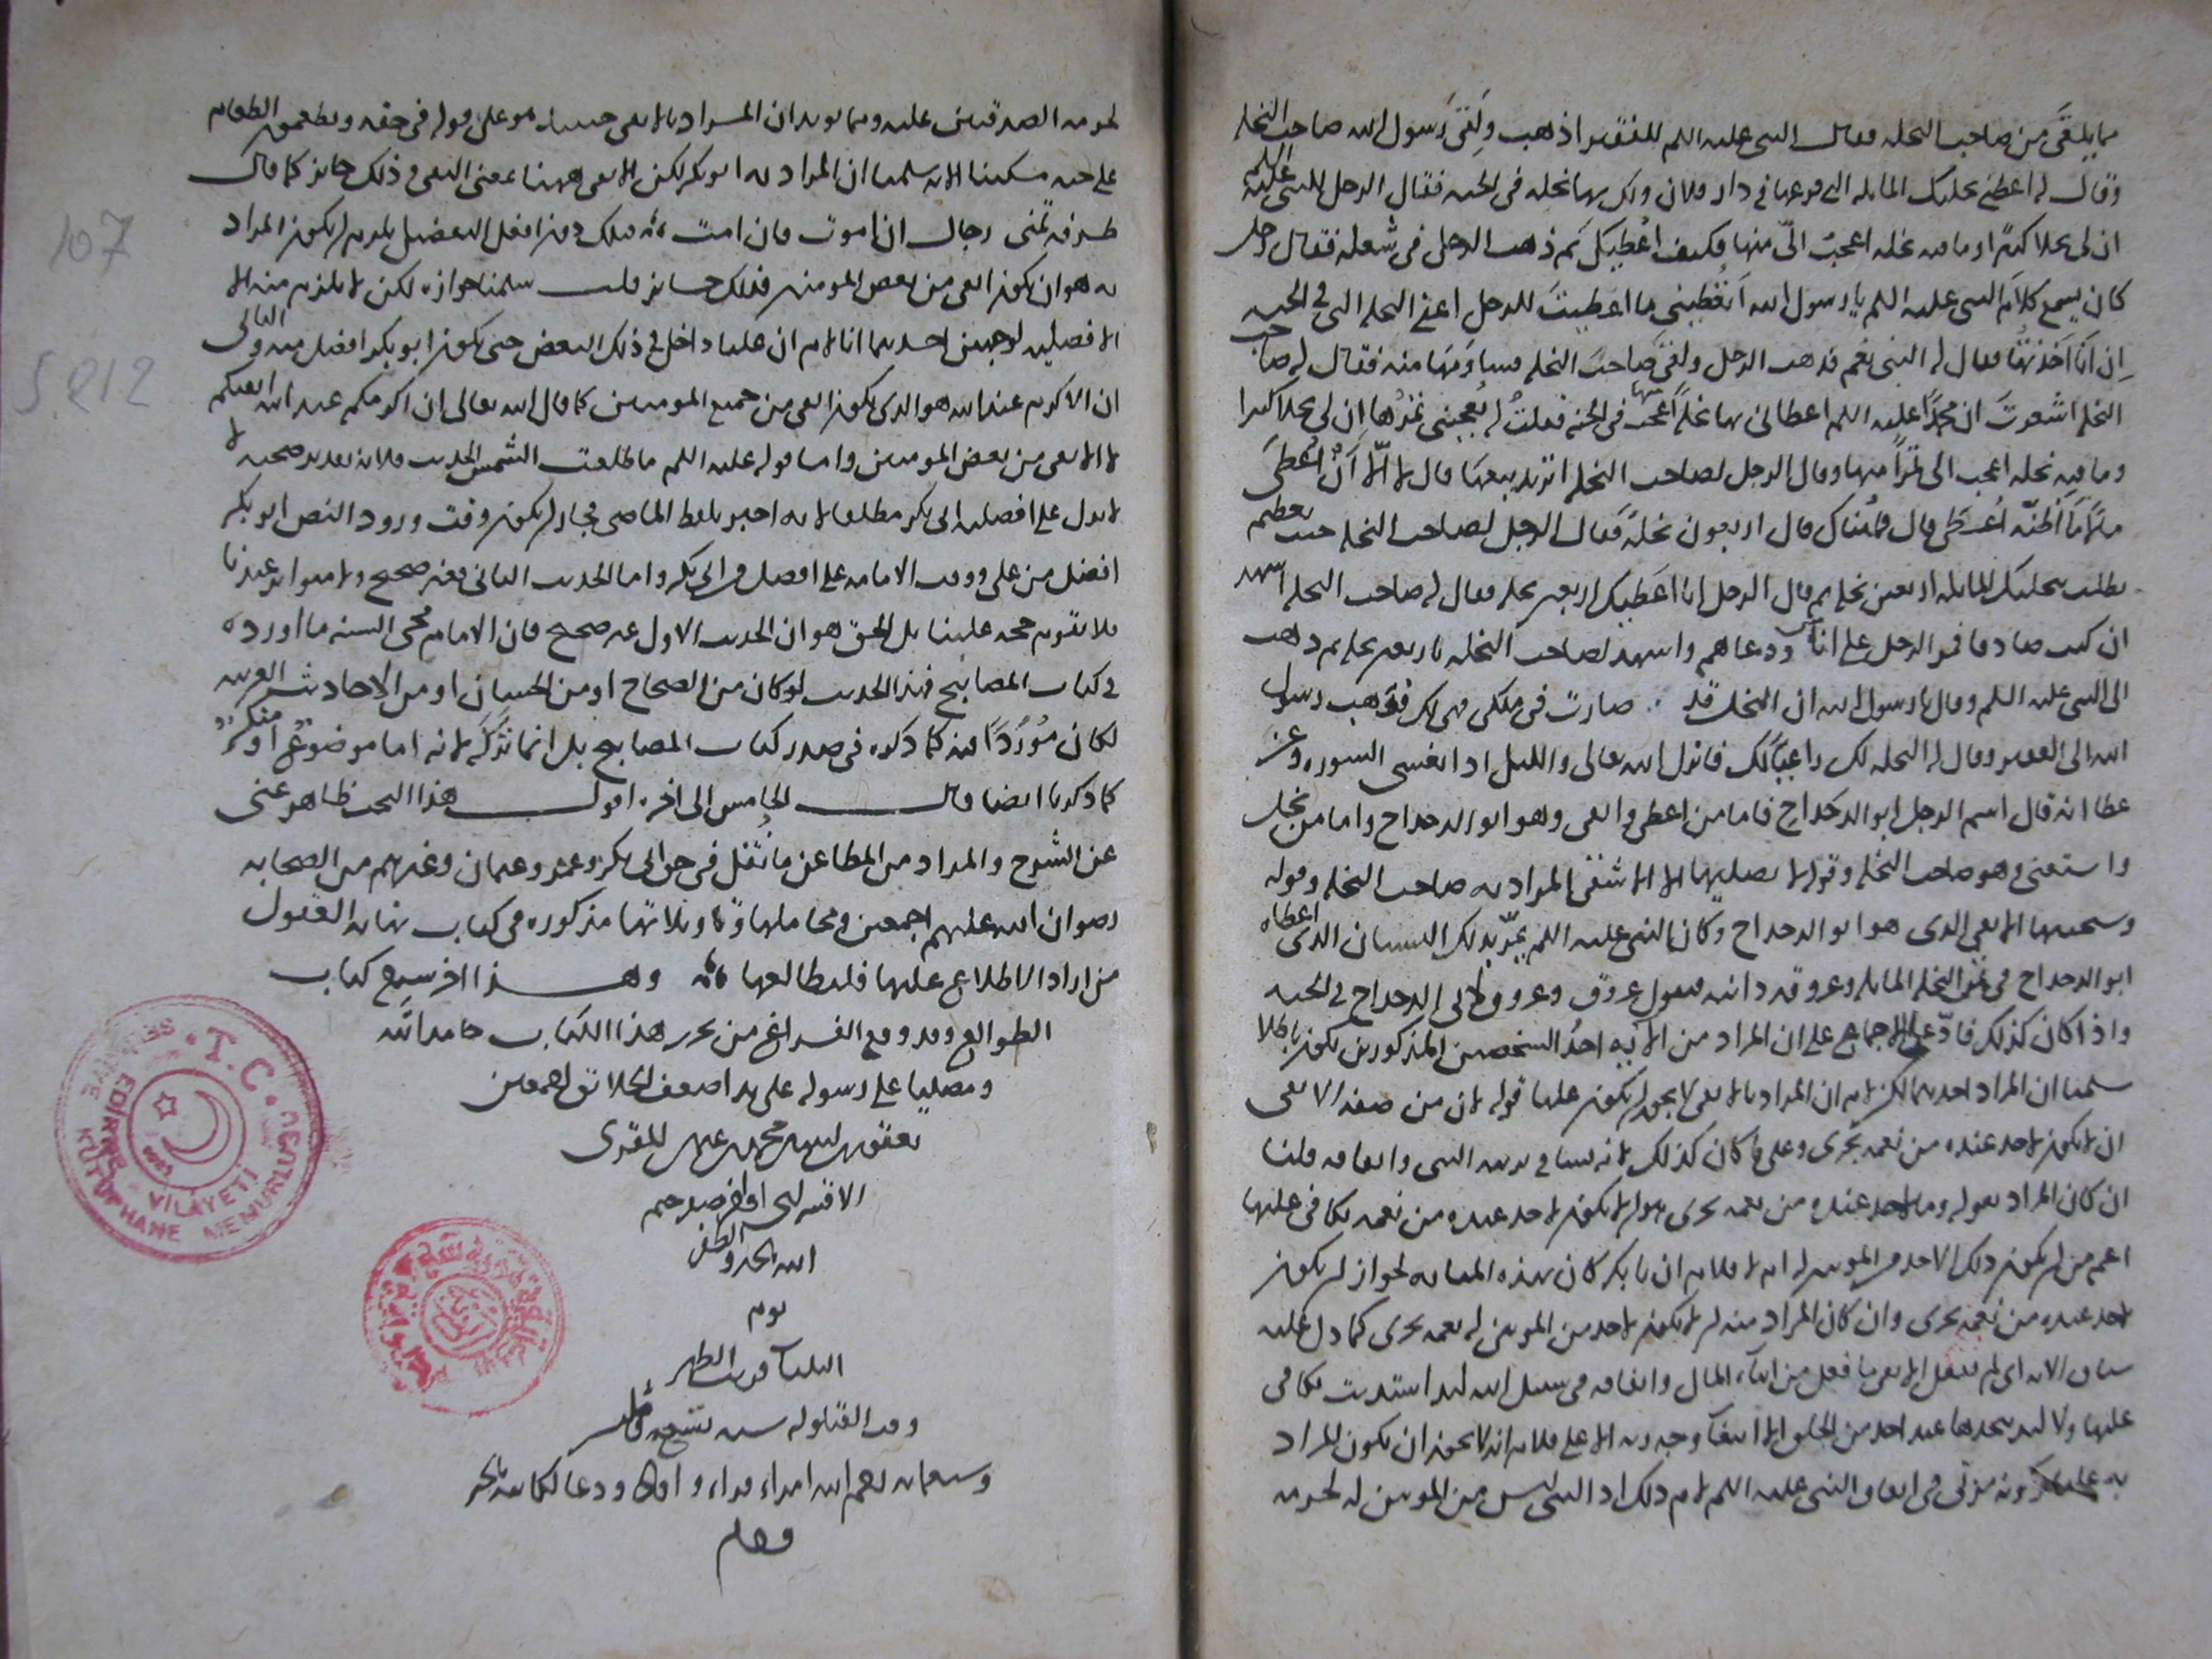 مما يلقى من صاحب النخله فقال النبى عليه السلم للفقير اذهب ولقى رسول الله صاحب النخله
وقال له اعطنى نخلتك المايله التى فرعها فى دار فلان ولك بها نخله فى الجنه فقال الرجل للنبى عليه السلم
ان لى نخلا كثيرا وما فيه نخله اعجب الىّ منها فكيف اعطيك ثم ذهب الرجل فى شغله فقال رجل
كان يسمع كلام النبى عليه السلم يا رسول الله اتعطينى ما اعطيت للرجل اعنى النخله التى فى الجنه
ان انا اخذتها فقال له النبى نعم فذهب الرجل ولقى صاحب النخله فساومها منه فقال له صاحب
النخله اشعرت ان محمدا عليه السلم اعطانى بها نخله فى الجنه فقلت له يعجبنى تمرها ان لى نخلا كثيرا
وما فيه نخله اعجب الى تمرا منها وقال الرجل لصاحب النخله اتريد بيعها قال لا الّا ان اعطى
قال فما مناك قال اربعون نخلة فقال الرجل لصاحب النخله جئت بعظيم
تطلب بنخلتك المايله اربعين نخله ثم قال الرجل انا اعطيك اربعين نخله فقال له صاحب النخله اشهد
ان كنت صادقا فمر الرجل على اناس ودعاهم واشهد لصاحب النخله باربعين نخله ثم ذهب
الى النبى عليه السلم وقال يا رسول الله ان النخله قد صارت فى ملكى فهى لك فذهب رسول
الله الى الفقير وقال له النخله لك ولعيالك فانزل الله تعالى والليل اذا يغشى السوره وعن
عطا انه قال اسم الرجل ابو الدحداح فاما من اعطى واتقى وهو ابو الدحداح واما من بخل
واستغنى وهو صاحب النخله وقوله لا يصليها الا الاشقى المراد به صاحب النخله وقوله
وسيجنبها الاتقى الذى هو ابو الدحداح وكان النبى عليه السلم يمرّ بذلك البستان الذى اعطاه
ابو الدحداح فى ثمن النخله المايله وعروقه دانيه فيقول عروق وعروق لابى الدحداح فى الجنه
واذا كان كذلك فادّعا الاجماع على ان المراد من الايه احد الشخصين المذكورين يكون باطلا
سلمنا ان المراد احدهما لكن لا نم ان المراد بالاتقى لا يجوز ان يكون عليا قوله لان من صفه الاتقى
ان لا يكون لاحد عنده من نعمه تجزى وعلى ما كان كذلك لانه نشا فى تربيه النبى وانفاقه قلنا
ان كان المراد بقوله وما لاحد عنده من نعمه تجزى هو ان لا يكون لاحد عنده من نعمه يكافى عليها
اعم من ان يكون ذلك الاحد من المومنين او لا فلا نم ان ابا بكر كان بهذه المثابه لجواز ان يكون
لاحد عنده من نعمه تجزى وان كان المراد منه ان لا يكون لاحد من المومنين له نعمه تجزى كما دل عليه
سياق الايه اى لم يفعل الاتقى ما فعل من ايتاء المال وانفاقه فى سبيل الله ليد استديت يكافى
عليها ولا ليد يتخذها عند احد من الخلق الا ابتغآ وجه ربه الاعلى فلا نم انه لا يجوز ان يكون المراد
به عليا كونه مربى فى انفاق النبى عليه السلم لا نم ذلك اذ النبى ليس من المومنين له لحرمه
لحرمه الصدقتين عليه ومما يويد ان المراد بالاتقى حينئذ هو على قوله فى حقه ويطعمون الطعام
على حبه مسكينا الايه سلمنا ان المراد به ابو بكر لكن الاتقى ههنا بمعنى التقى وذلك جايز كما قال
طرفه تمنى رجال ان اموت فان امت فتلك افعل التفضيل يلزم ان يكون المراد
به هو ان يكون اتقى من بعض المومنين فذلك جايز قلت سلمنا جوازه لكن لا يلزم منه الا
الافضليه لوجهين احدهما انا لا نم ان عليا داخل فى ذلك البعض حتى يكون ابو بكر افضل منه والثانى
ان الاكرم عند الله هو الذى يكون اتقى من جميع المومنين كما قال الله تعالى ان اكرمكم عند الله اتقيكم
لا الاتقى من بعض المومنين واما قوله عليه السلم ما طلعت الشمس الحديث فلانه بعد صحته لا
لا يدل على افضليه ابى بكر مطلقا لانه اخبر بلفظ الماضى فجاز ان يكون وقت ورود النص ابو بكر
افضل من على ووقت الامامه على افضل من ابى بكر واما الحديث الثانى فغير صحيح ولا متواتر عندنا
فلا تقوم حجه علينا بل الحق هو ان الحديث الاول غير صحيح فان الامام محيى السنه ما اورده
فى كتاب المصابيح فهذا الحديث لو كان من الصحاح او من الحسان او من الاحاديث الغريبه
لكان موردا فيه كما ذكره فى صدر كتاب المصابيح بل انما تركه لانه اما موضوع او منكر
كما ذكرنا ايضا قال الخامس الى اخره اقول هذا البحث ظاهر غنى
عن الشرح والمراد من المطاعن ما نقل فى حق ابى بكر وعمر وعثمان وغيرهم من الصحابه
رضوان الله عليهم اجمعين ومحاملها وتاويلاتها مذكوره فى كتاب نهايه العقول
من اراد الاطلاع عليها فليطالعها وهذا اخر شرح كتاب
الطوالع وقد وقع الفراغ من تحرير هذا الكتاب حامدا لله
ومصليا على رسوله على يد اضعف الخلايق اجمعين
يعقوب بن محمد بن على المقرى
الاقسرايى اواخر صفر ختم
الله بالخير والظفر
يوم
الثلثآ قريب الظهر
وقت القيلوله سنه تسع
وسبعمايه
T.C.
EDİRNE VİLÂYETİ
SELİMİYE KÜTÜPHANE MEMURLUĞU
107
5.212